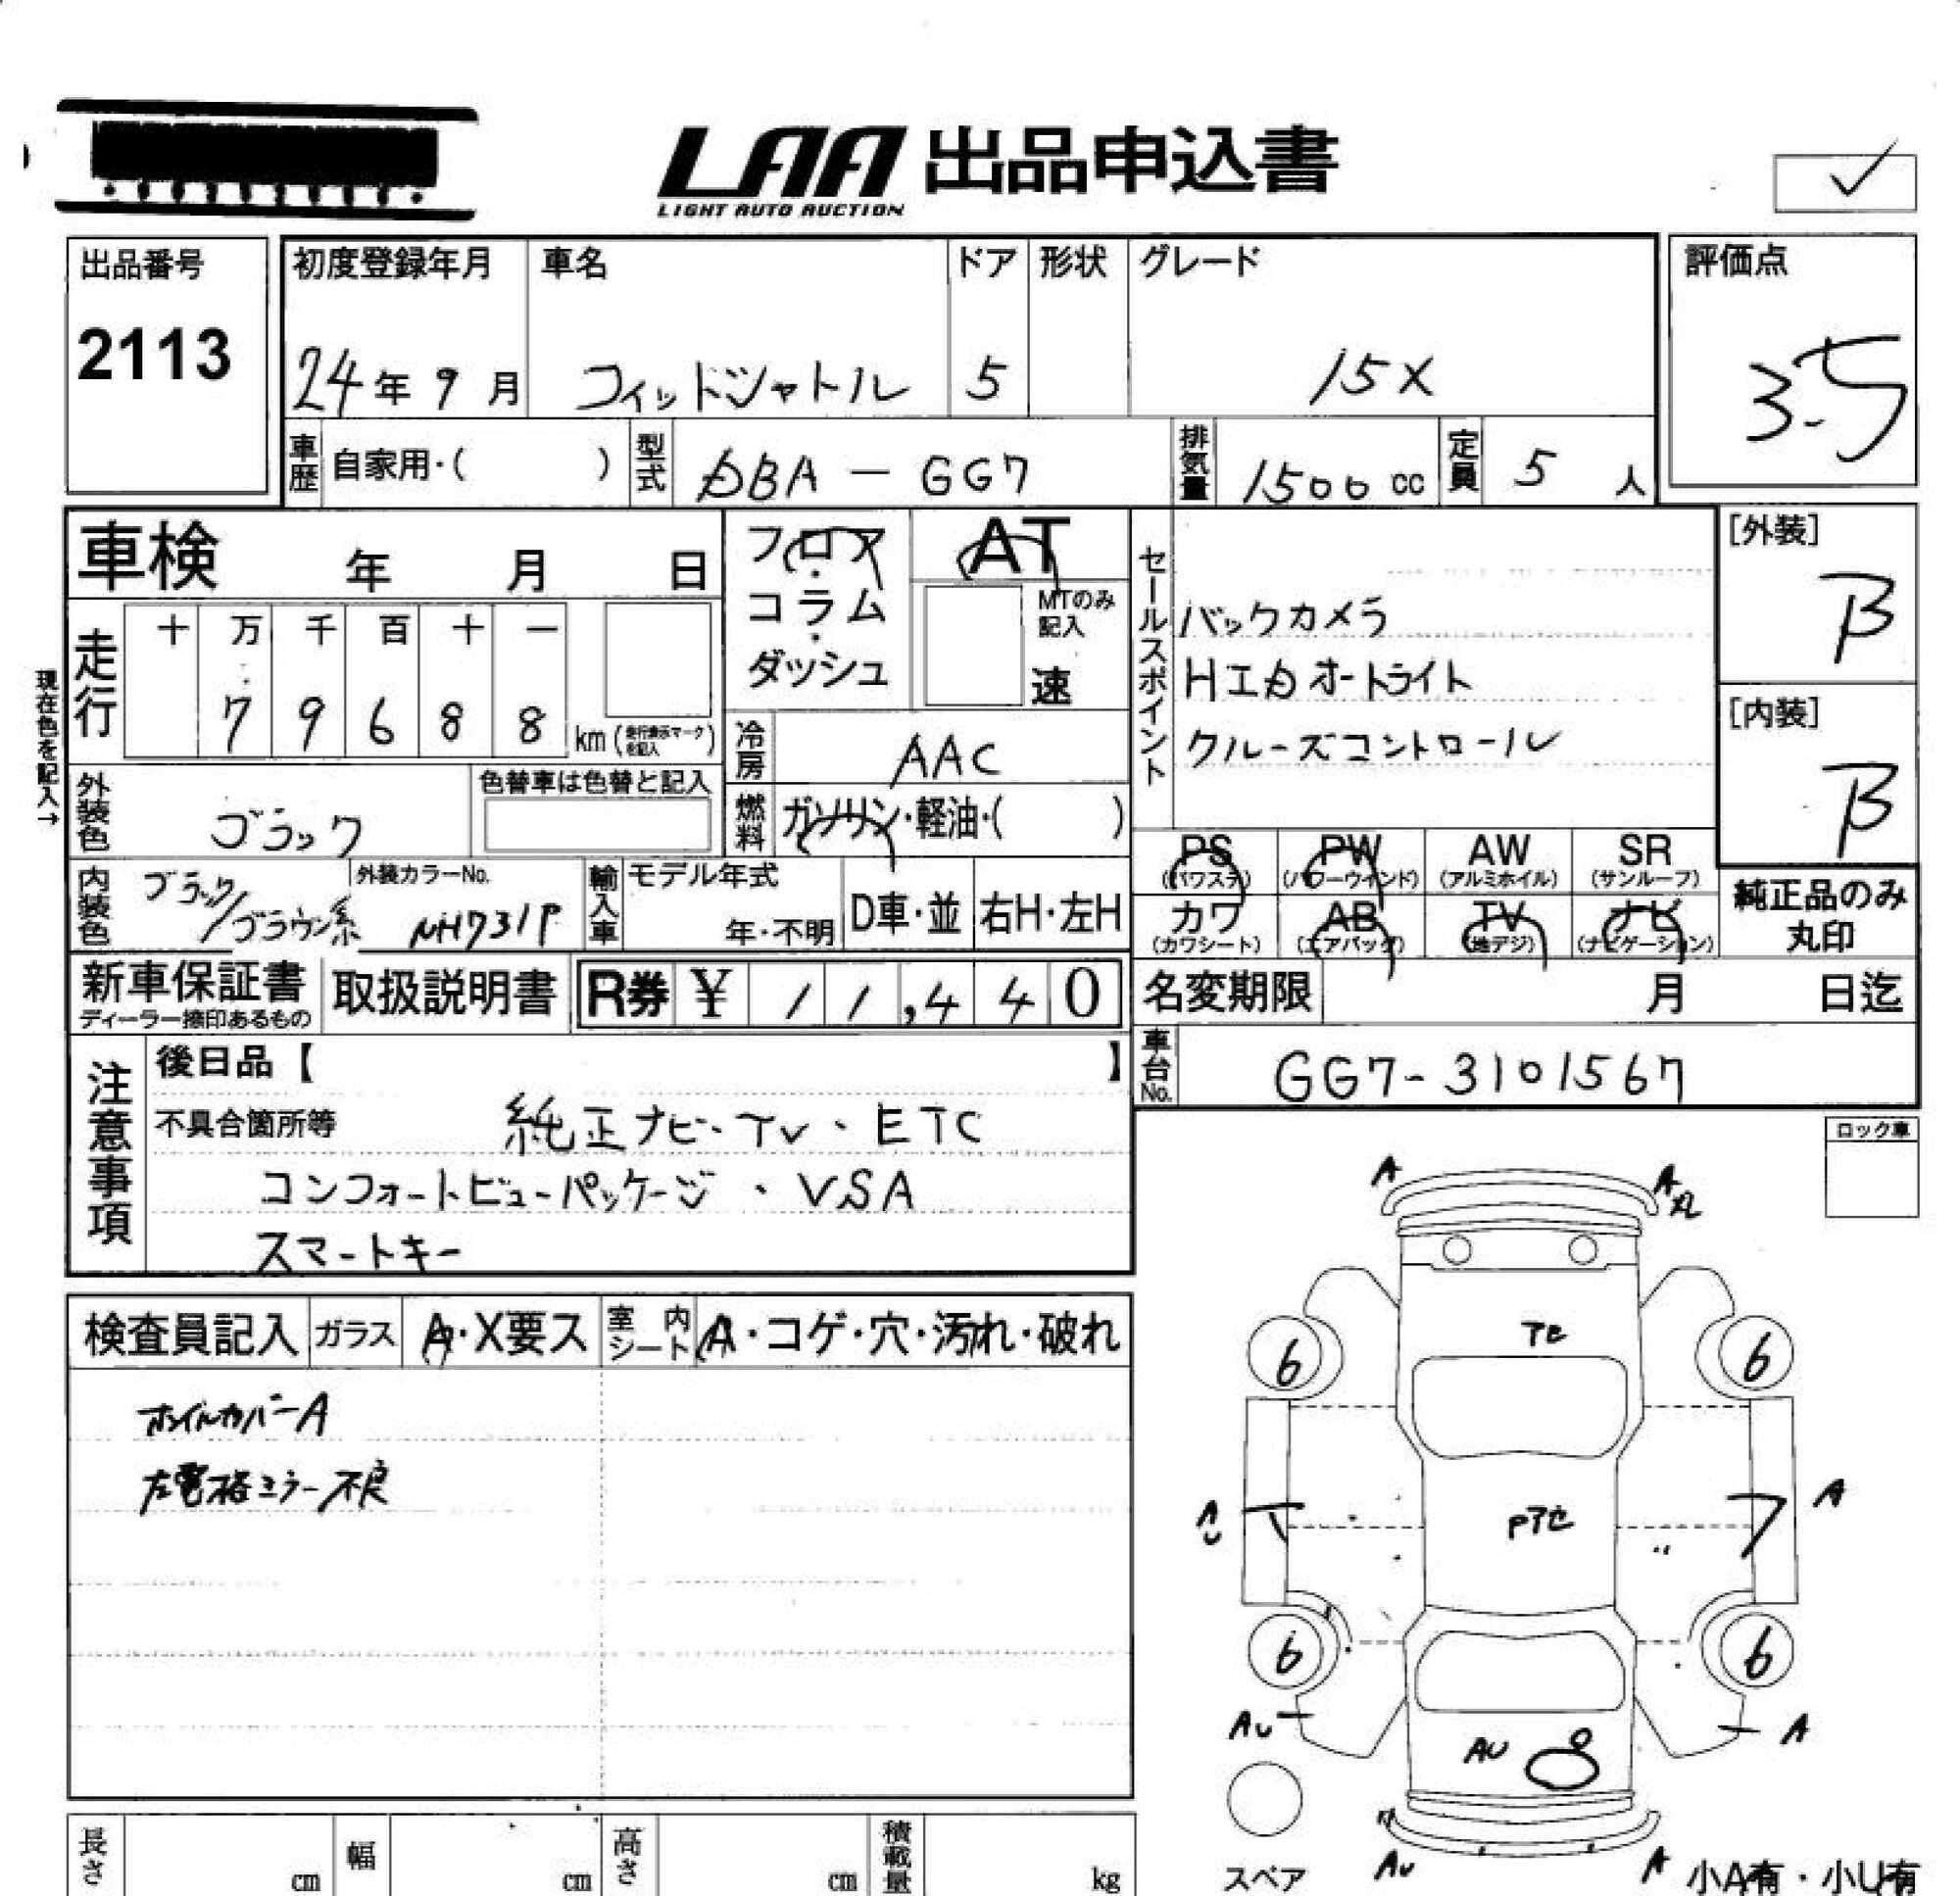 LAA 出品申込書
LIGHT AUTO AUCTION
出品番号
2113
初度登録年月 車名 ドア 形状 グレード
24年 9月 フィットシャトル 5 15X
評価点
3.5
車歴 自家用・( ) 型式 DBA-GG7 排気量 1500cc 定員 5人
車検 年 月 日
フロア・コラム・ダッシュ
AT
MTのみ記入
速
現在色を記入→
走行 十 万 千 百 十 一
79688 km (走行表示マークを記入)
冷房 AAC
外装色 ブラック
色替車は色替と記入
燃料 ガソリン・軽油・( )
内装色 ブラック/ブラウン系
外装カラーNo. NH731P
輸入車 モデル年式 年・不明 D車・並 右H・左H
セールスポイント
バックカメラ
HIDオートライト
クルーズコントロール
[外装]
B
[内装]
B
PS (パワステ) PW (パワーウインド) AW (アルミホイル) SR (サンルーフ)
カワ (カワシート) AB (エアバッグ) TV (地デジ) ナビ (ナビゲーション)
純正品のみ丸印
新車保証書 ディーラー捺印あるもの 取扱説明書 R券 ¥ 11,440
名変期限 月 日迄
車台No. GG7-3101567
注意事項
後日品【 】
不具合箇所等 純正ナビ・TV・ETC
コンフォートビューパッケージ・VSA
スマートキー
検査員記入 ガラス A・X要ス 室内シート A・コゲ・穴・汚れ・破れ
ホイルカバーA
左電格ミラー不良
ロック車
A A
アセ
6 6
AU Pアセ A
6 6
AU AU A
AU A
スペア
小A有・小U有
長さ cm 幅 cm 高さ cm 積載量 kg